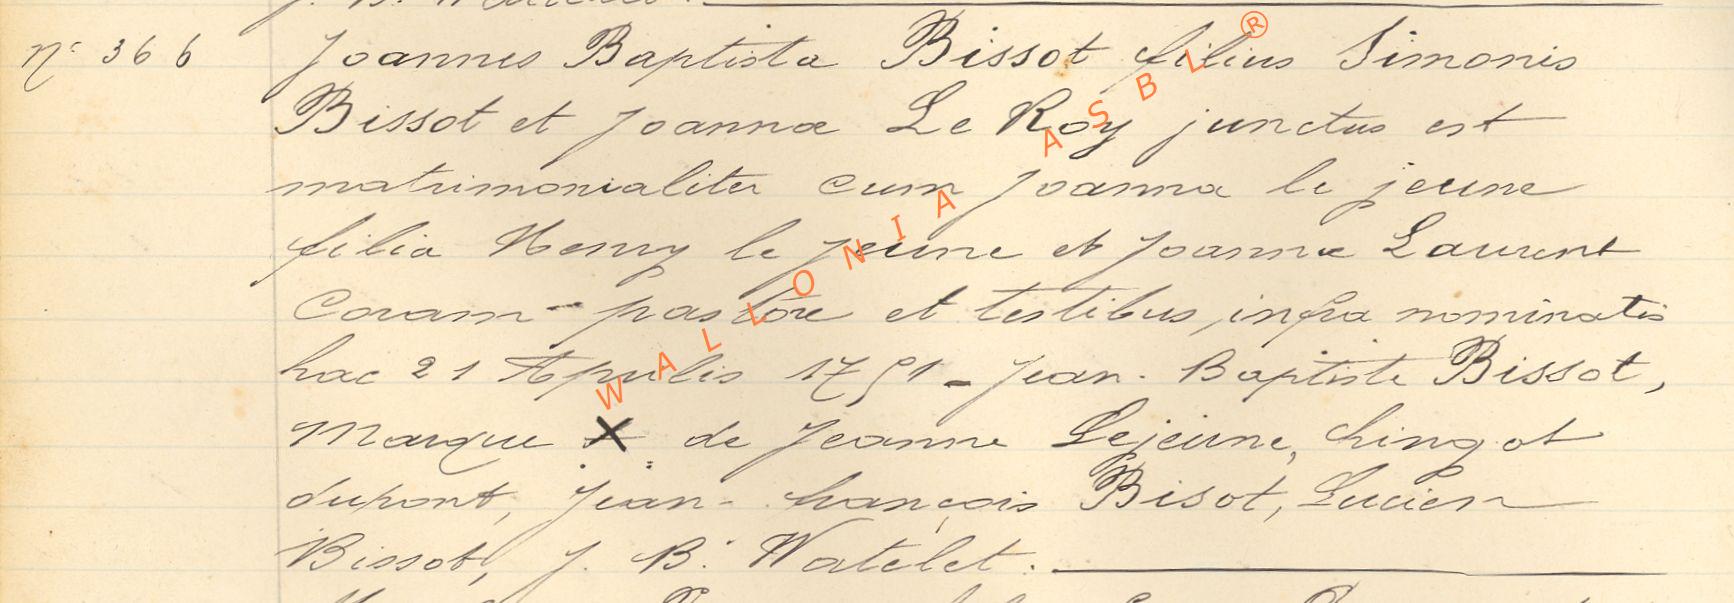 J. B. Watelet.
N° 366 Joannes Baptista Bissot filius Simonis
Bissot et Joannæ Le Roy junctus est
matrimonialiter cum Joanna le jeune
filia Henry le jeune et Joannæ Laurent
Coram pastore et testibus, infra nominatis
hac 21 Aprilis 1751 - Jean-Baptiste Bissot,
Marque X de Jeanne Lejeune, hingot
dupont, Jean-françois Bisot, Lucien
Bissot, J. B. Watelet.
WALLONIA ASBL ®